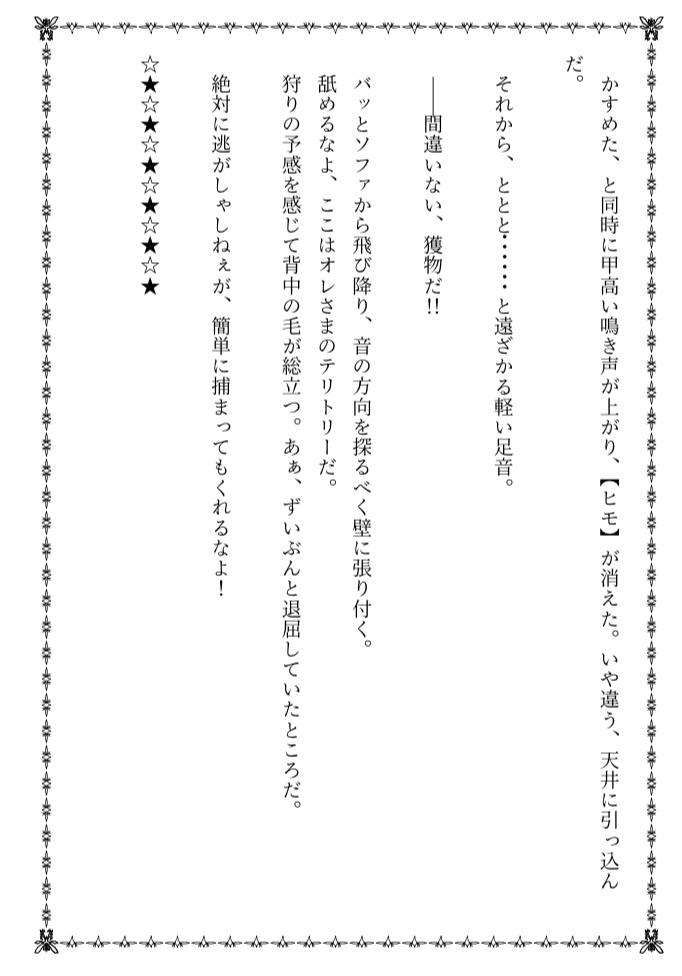 かすめた、と同時に甲高い鳴き声が上がり、【ヒモ】が消えた。いや違う、天井に引っ込ん
だ。
それから、ととと・・・・・・と遠ざかる軽い足音。
――間違いない、獲物だ!!
バッとソファから飛び降り、音の方向を探るべく壁に張り付く。
舐めるなよ、ここはオレさまのテリトリーだ。
狩りの予感を感じて背中の毛が総立つ。あぁ、ずいぶんと退屈していたところだ。
絶対に逃がしゃしねぇが、簡単に捕まってもくれるなよ！
☆★☆★☆★☆★☆★☆★